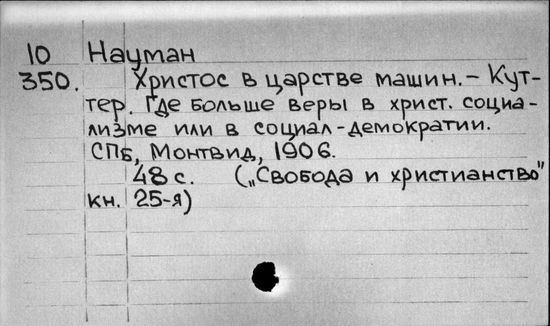 10 Науман
350. Христос в царстве машин. – Кут-
тер. Где больше веры в христ. социа-
лизме или в социал-демократии.
СПБ, Монтвид, 1906.
48 с. („Свобода и христианство"
кн. 25-я)